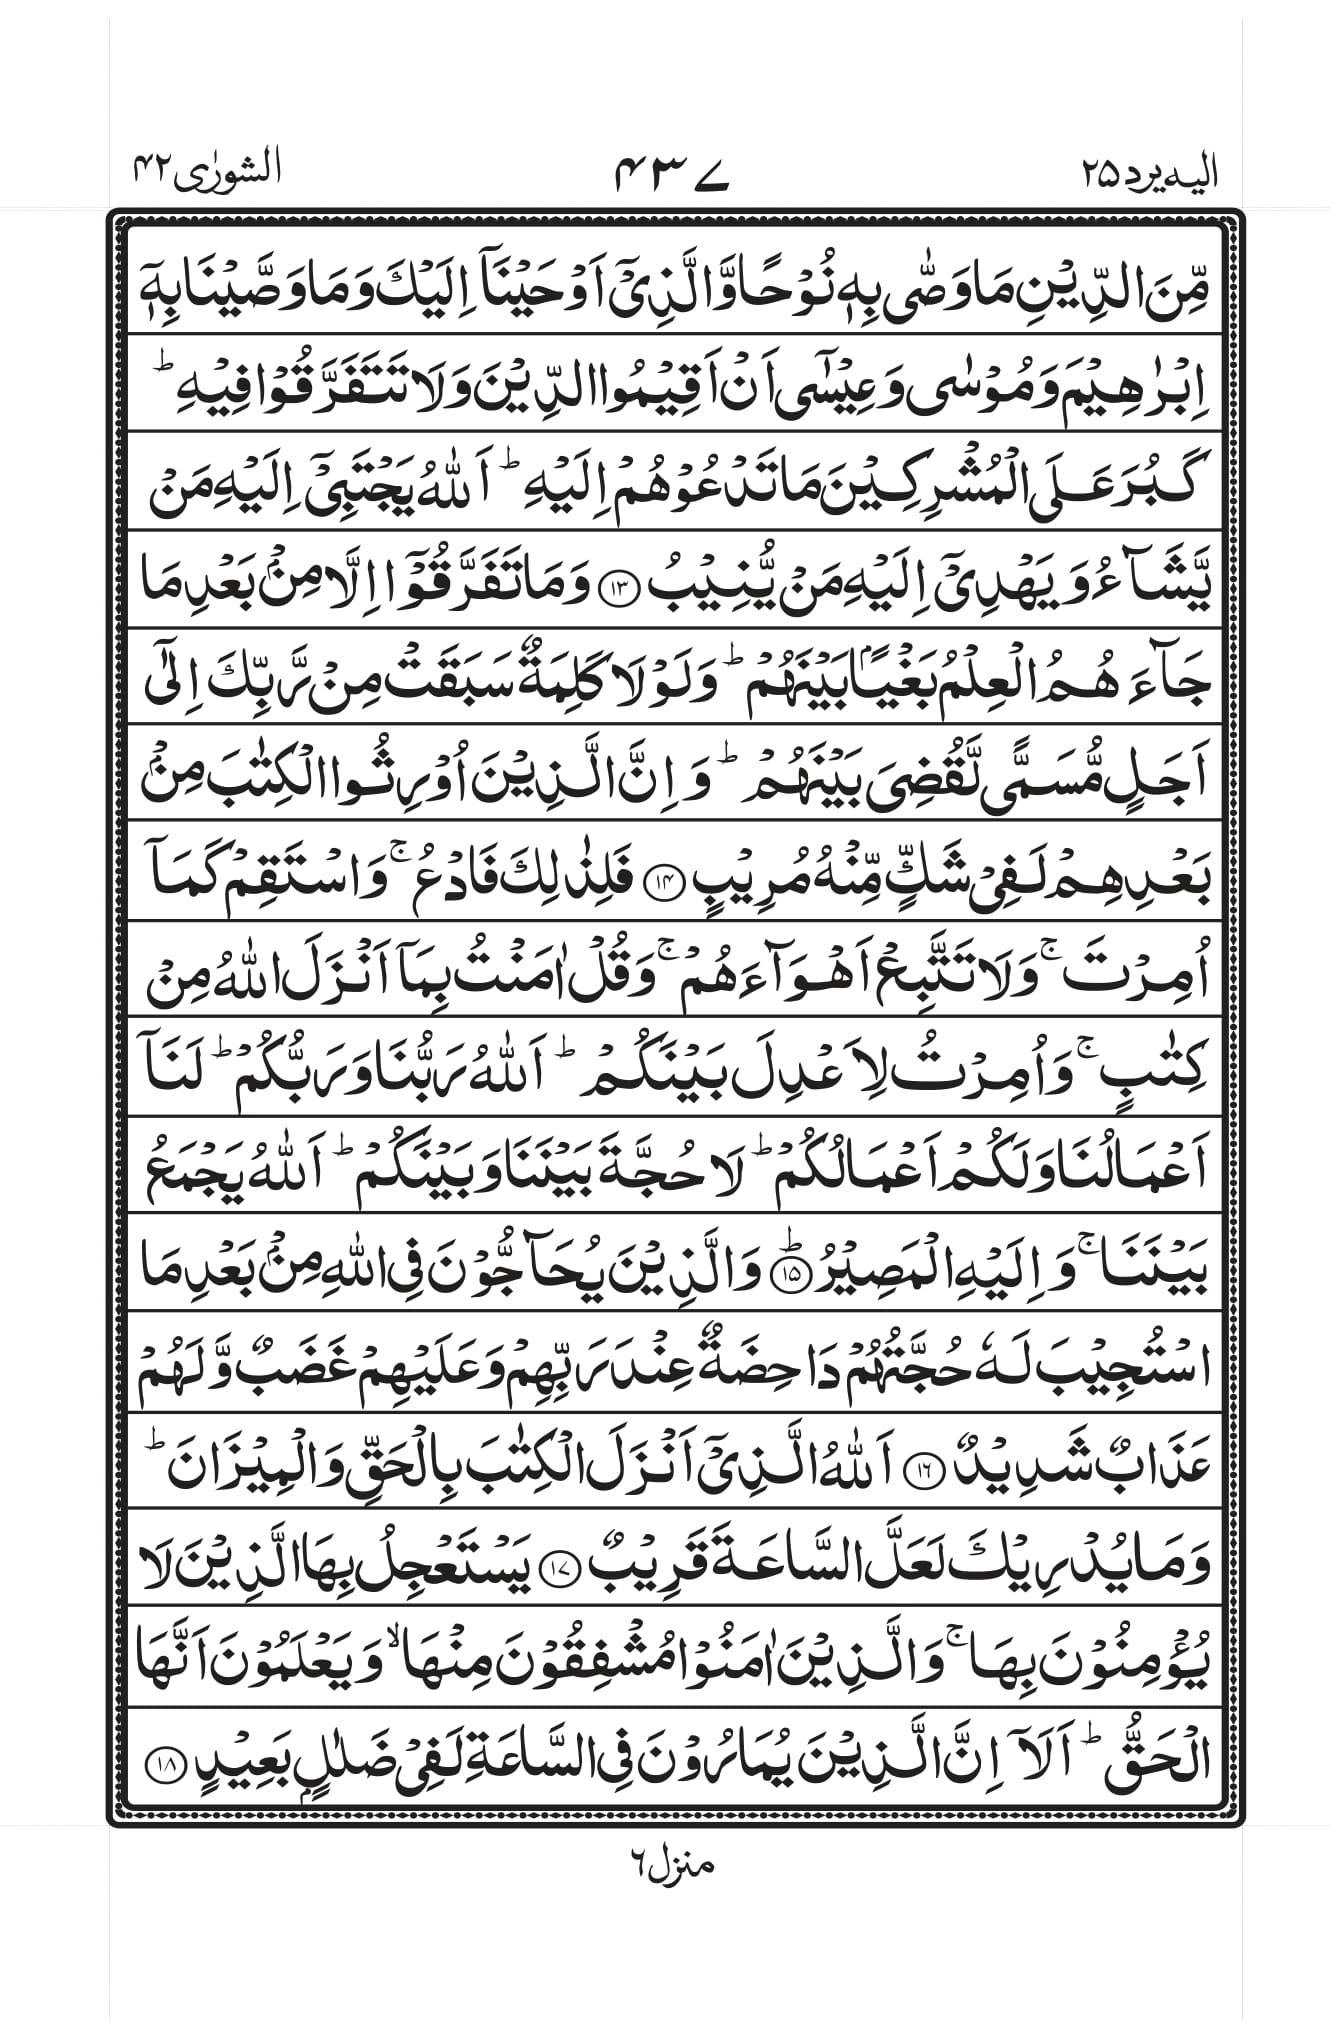 الیه یرد ۲۵
۴۳۷
الشورٰی ۴۲
مِّنَ الدِّیْنِ مَا وَصّٰی بِهٖ نُوْحًا وَّالَّذِیْۤ اَوْحَیْنَاۤ اِلَیْكَ وَمَا وَصَّیْنَا بِهٖۤ
اِبْرٰهِیْمَ وَمُوْسٰی وَعِیْسٰۤی اَنْ اَقِیْمُوا الدِّیْنَ وَلَا تَتَفَرَّقُوْا فِیْهِ ؕ
كَبُرَ عَلَی الْمُشْرِكِیْنَ مَا تَدْعُوْهُمْ اِلَیْهِ ؕ اَللّٰهُ یَجْتَبِیْۤ اِلَیْهِ مَنْ
یَّشَآءُ وَیَهْدِیْۤ اِلَیْهِ مَنْ یُّنِیْبُ ۝۱۳ وَمَا تَفَرَّقُوْۤا اِلَّا مِنْۢ بَعْدِ مَا
جَآءَهُمُ الْعِلْمُ بَغْیًۢا بَیْنَهُمْ ؕ وَلَوْلَا كَلِمَةٌ سَبَقَتْ مِنْ رَّبِّكَ اِلٰۤی
اَجَلٍ مُّسَمًّی لَّقُضِیَ بَیْنَهُمْ ؕ وَاِنَّ الَّذِیْنَ اُوْرِثُوا الْكِتٰبَ مِنْۢ
بَعْدِهِمْ لَفِیْ شَكٍّ مِّنْهُ مُرِیْبٍ ۝۱۴ فَلِذٰلِكَ فَادْعُ ۚ وَاسْتَقِمْ كَمَاۤ
اُمِرْتَ ۚ وَلَا تَتَّبِعْ اَهْوَآءَهُمْ ۚ وَقُلْ اٰمَنْتُ بِمَاۤ اَنْزَلَ اللّٰهُ مِنْ
كِتٰبٍ ۚ وَاُمِرْتُ لِاَعْدِلَ بَیْنَكُمْ ؕ اَللّٰهُ رَبُّنَا وَرَبُّكُمْ ؕ لَنَاۤ
اَعْمَالُنَا وَلَكُمْ اَعْمَالُكُمْ ؕ لَا حُجَّةَ بَیْنَنَا وَبَیْنَكُمْ ؕ اَللّٰهُ یَجْمَعُ
بَیْنَنَا ۚ وَاِلَیْهِ الْمَصِیْرُ ؕ۝۱۵ وَالَّذِیْنَ یُحَآجُّوْنَ فِی اللّٰهِ مِنْۢ بَعْدِ مَا
اسْتُجِیْبَ لَهٗ حُجَّتُهُمْ دَاحِضَةٌ عِنْدَ رَبِّهِمْ وَعَلَیْهِمْ غَضَبٌ وَّلَهُمْ
عَذَابٌ شَدِیْدٌ ۝۱۶ اَللّٰهُ الَّذِیْۤ اَنْزَلَ الْكِتٰبَ بِالْحَقِّ وَالْمِیْزَانَ ؕ
وَمَا یُدْرِیْكَ لَعَلَّ السَّاعَةَ قَرِیْبٌ ۝۱۷ یَسْتَعْجِلُ بِهَا الَّذِیْنَ لَا
یُؤْمِنُوْنَ بِهَا ۚ وَالَّذِیْنَ اٰمَنُوْا مُشْفِقُوْنَ مِنْهَا ۙ وَیَعْلَمُوْنَ اَنَّهَا
الْحَقُّ ؕ اَلَاۤ اِنَّ الَّذِیْنَ یُمَارُوْنَ فِی السَّاعَةِ لَفِیْ ضَلٰلٍۭ بَعِیْدٍ ۝۱۸
منزل ۶